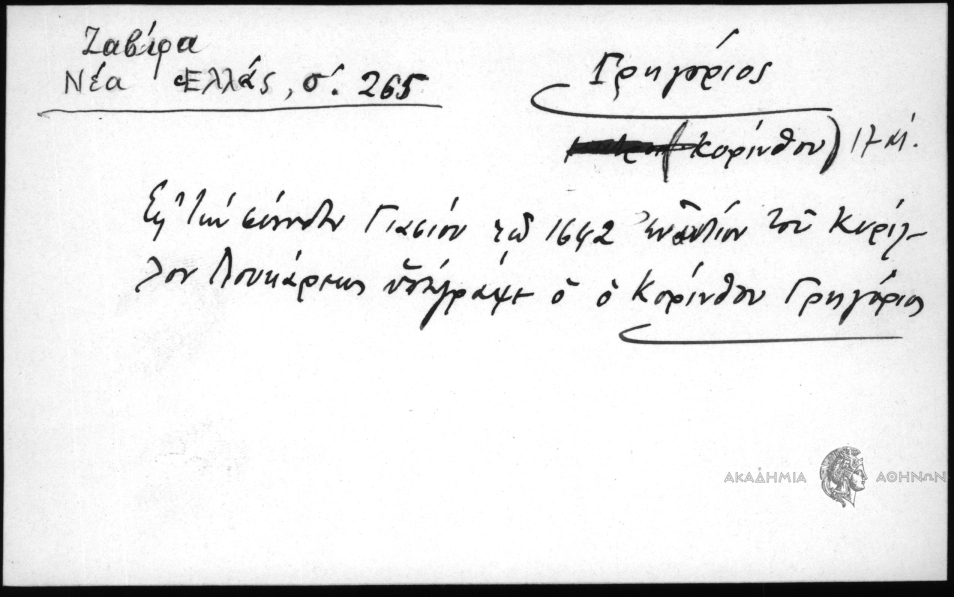 Ζαβίρα
Νέα Ἑλλάς, σ. 265
Γρηγόριος
(Κορίνθου) 17 αἰ.
Εἰς τὴν σύνοδον Γιασίου τοῦ 1642 ἐναντίον τοῦ Κυρίλ-
λου Λουκάρεως ὑπέγραψε ὁ Κορίνθου Γρηγόριος
ΑΚΑΔΗΜΙΑ ΑΘΗΝΩΝ